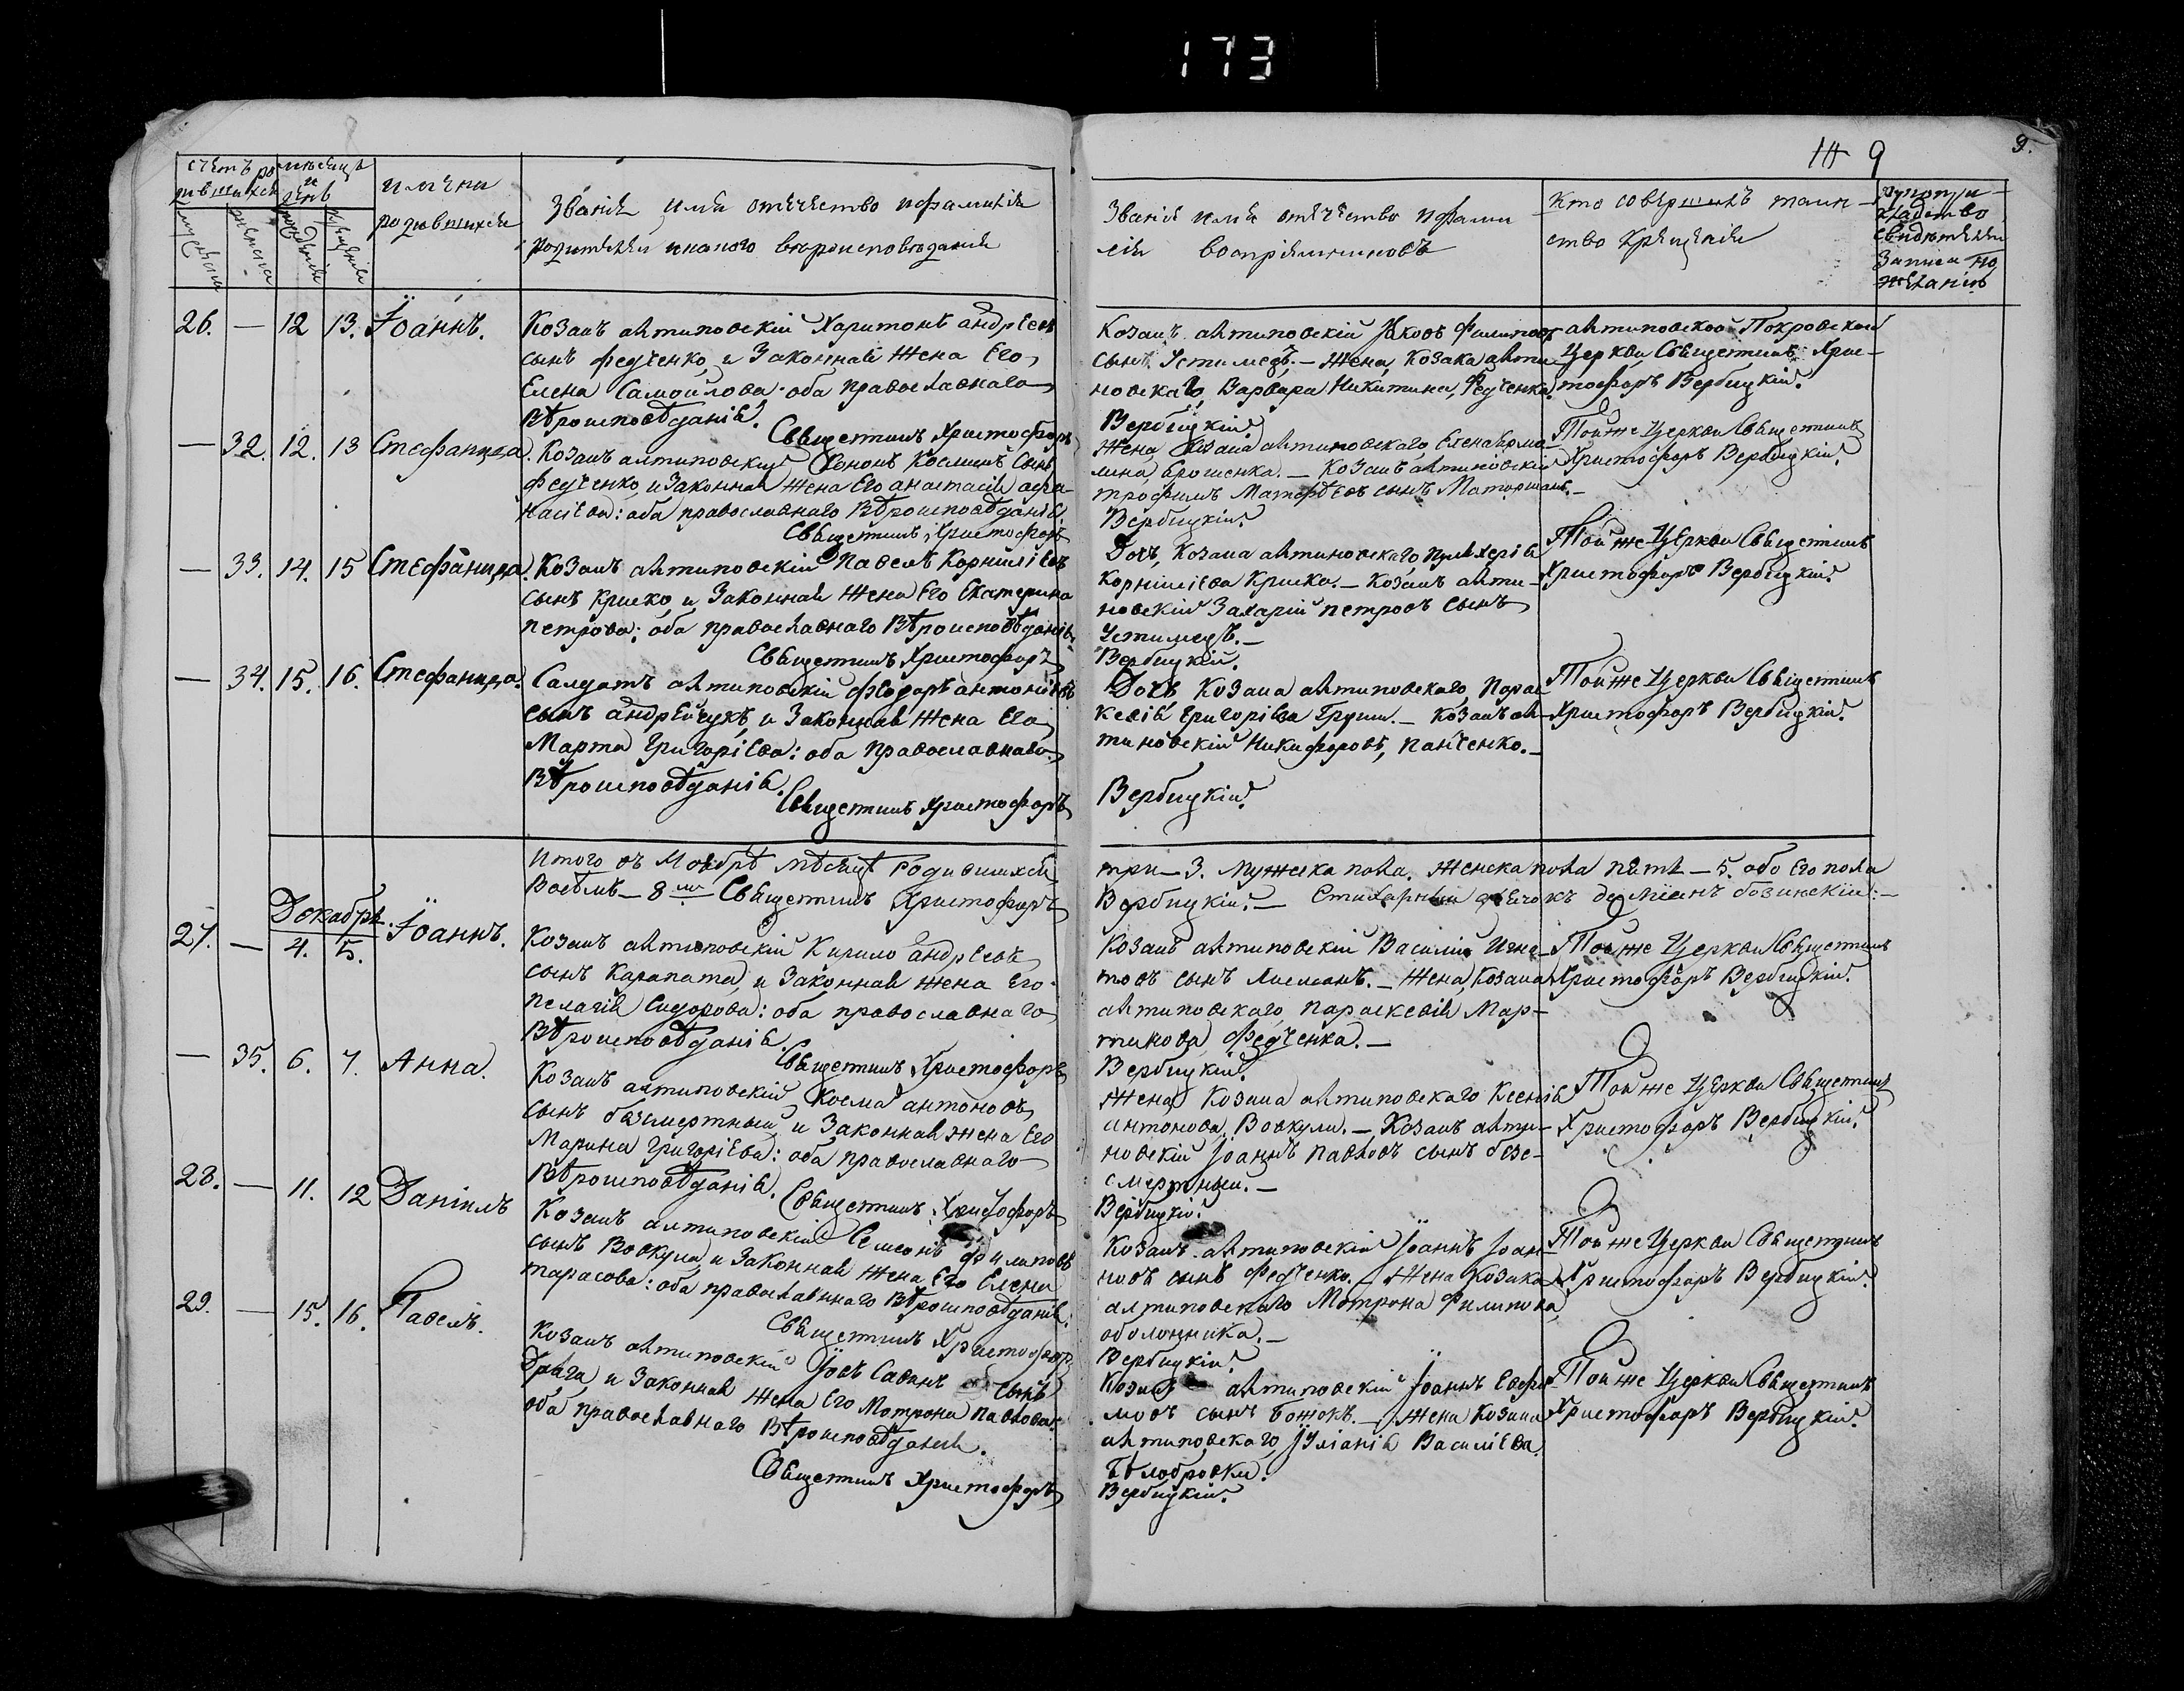 173
9
9.
счетъ ро
дившихся
мѣсяцъ
и
день
имена
родившихся
Званіе имя отечество и фамилія
родителей и какого вѣроисповѣданія
Званіе имя отечество и фами
лія воспріемниковъ
Кто совершилъ таин
ство крещенія
рукопри-
кладство
свидѣтелей
записи по
желанію
мужеска
женска
рожденія
крещенія
26. — 12 13. Іоаннъ.
Козакъ антиповскій Харитонъ андреевъ
сынъ федченко, и Законная жена Его
Елена Самойлова: оба православнаго
Вѣроисповѣданія.
Священникъ Христофоръ
Козакъ антиповскій Яковъ Филиповъ
сынъ Устимецъ. — Жена, Козака анти
повскаго, Варвара Никитина, Федченка.
Вербицкій.
антиповской Покровской
Церкви Священникъ Хрис-
тофоръ Вербицкій.
— 32. 12. 13 Стефанида.
Козакъ антиповскій Кононъ Косминъ Сынъ
федченко, и Законная жена Его анастасія афа-
насіева: оба православнаго Вѣроисповѣданія
Священникъ Христофоръ
Жена Козака антиповскаго, Елена
Ерошенка. — Козакъ антиповскій
трофимъ сынъ
Вербицкій.
Той же Церкви Священникъ
Христофоръ Вербицкій.
— 33. 14. 15 Стефанида.
Козакъ антиповскій Павелъ Корниліевъ
сынъ Криско, и Законная жена Его Екатерина
петрова: оба православнаго Вѣроисповѣданія
Священникъ Христофоръ
Дочь, Козака антиповскаго, пулхерія
Корниліева Криска. — Козакъ анти-
повскій Захарій петровъ сынъ
Устимецъ. —
Вербицкій.
Той же Церкви Священникъ
Христофоръ Вербицкій.
— 34. 15. 16. Стефанида.
Салдатъ антиповскій федоръ антоніевъ
сынъ андрейчукъ, и Законная жена Его
Марта григоріева: оба православнаго
Вѣроисповѣданія.
Священникъ Христофоръ
Дочь Козака антиповскаго, парас
кевія григоріева Груши. — Козакъ ан-
типовскій Никифоровъ, панченко. —
Вербицкій.
Той же Церкви Священникъ
Христофоръ Вербицкій.
Итого въ Ноябрѣ мѣсяцѣ Родившихся
Восемь — 8. Священникъ Христофоръ
три — 3. мужеска пола. Женска пола пять — 5. обо Его пола
Вербицкій. — Стихарный дьячокъ
Декабрь.
27. — 4. 5. Іоаннъ.
Козакъ антиповскій Кирило андреевъ
сынъ Карапата, и Законная жена Его
пелагія Сидорова: оба православнаго
Вѣроисповѣданія.
Священникъ Христофоръ
Козакъ антиповскій Василій Игна-
товъ сынъ Лисманъ. — Жена, Козака
антиповскаго, параскевія Мар-
тинова Федченка. —
Вербицкій.
Той же Церкви Священникъ
Христофоръ Вербицкій.
— 35. 6. 7. Анна.
Козакъ антиповскій, Косма антоновъ
сынъ безсмертный, и Законная жена Его
Марина григоріева: оба православнаго
Вѣроисповѣданія.
Священникъ Христофоръ
Жена Козака антиповскаго Ксенія
антонова, Вовкули. — Козакъ анти-
повскій Іоаннъ павловъ сынъ безс-
смертный. —
Вербицкій.
Той же Церкви Священникъ
Христофоръ Вербицкій.
28. — 11. 12 Даніилъ
Козакъ антиповскій Семеонъ филиповъ
сынъ Вовкула, и Законная жена Его Елена
тарасова: оба православнаго Вѣроисповѣданія.
Священникъ Христофоръ
Козакъ антиповскій Іоаннъ Іоан-
новъ сынъ Федченко. — Жена Козака
антиповскаго Мотрона филипова
оболонника. —
Вербицкій.
Той же Церкви Священникъ
Христофоръ Вербицкій.
29. — 15. 16. Павелъ.
Козакъ антиповскій Іовъ Савинъ сынъ
Драга, и Законная жена Его Мотрона павлова:
оба православнаго Вѣроисповѣданія.
Священникъ Христофоръ
Козакъ антиповскій Іоаннъ Евфи-
мовъ сынъ Божокъ. — Жена Козака
антиповскаго, Іуліанія Василіева
Бѣлобровки.
Вербицкій.
Той же Церкви Священникъ
Христофоръ Вербицкій.